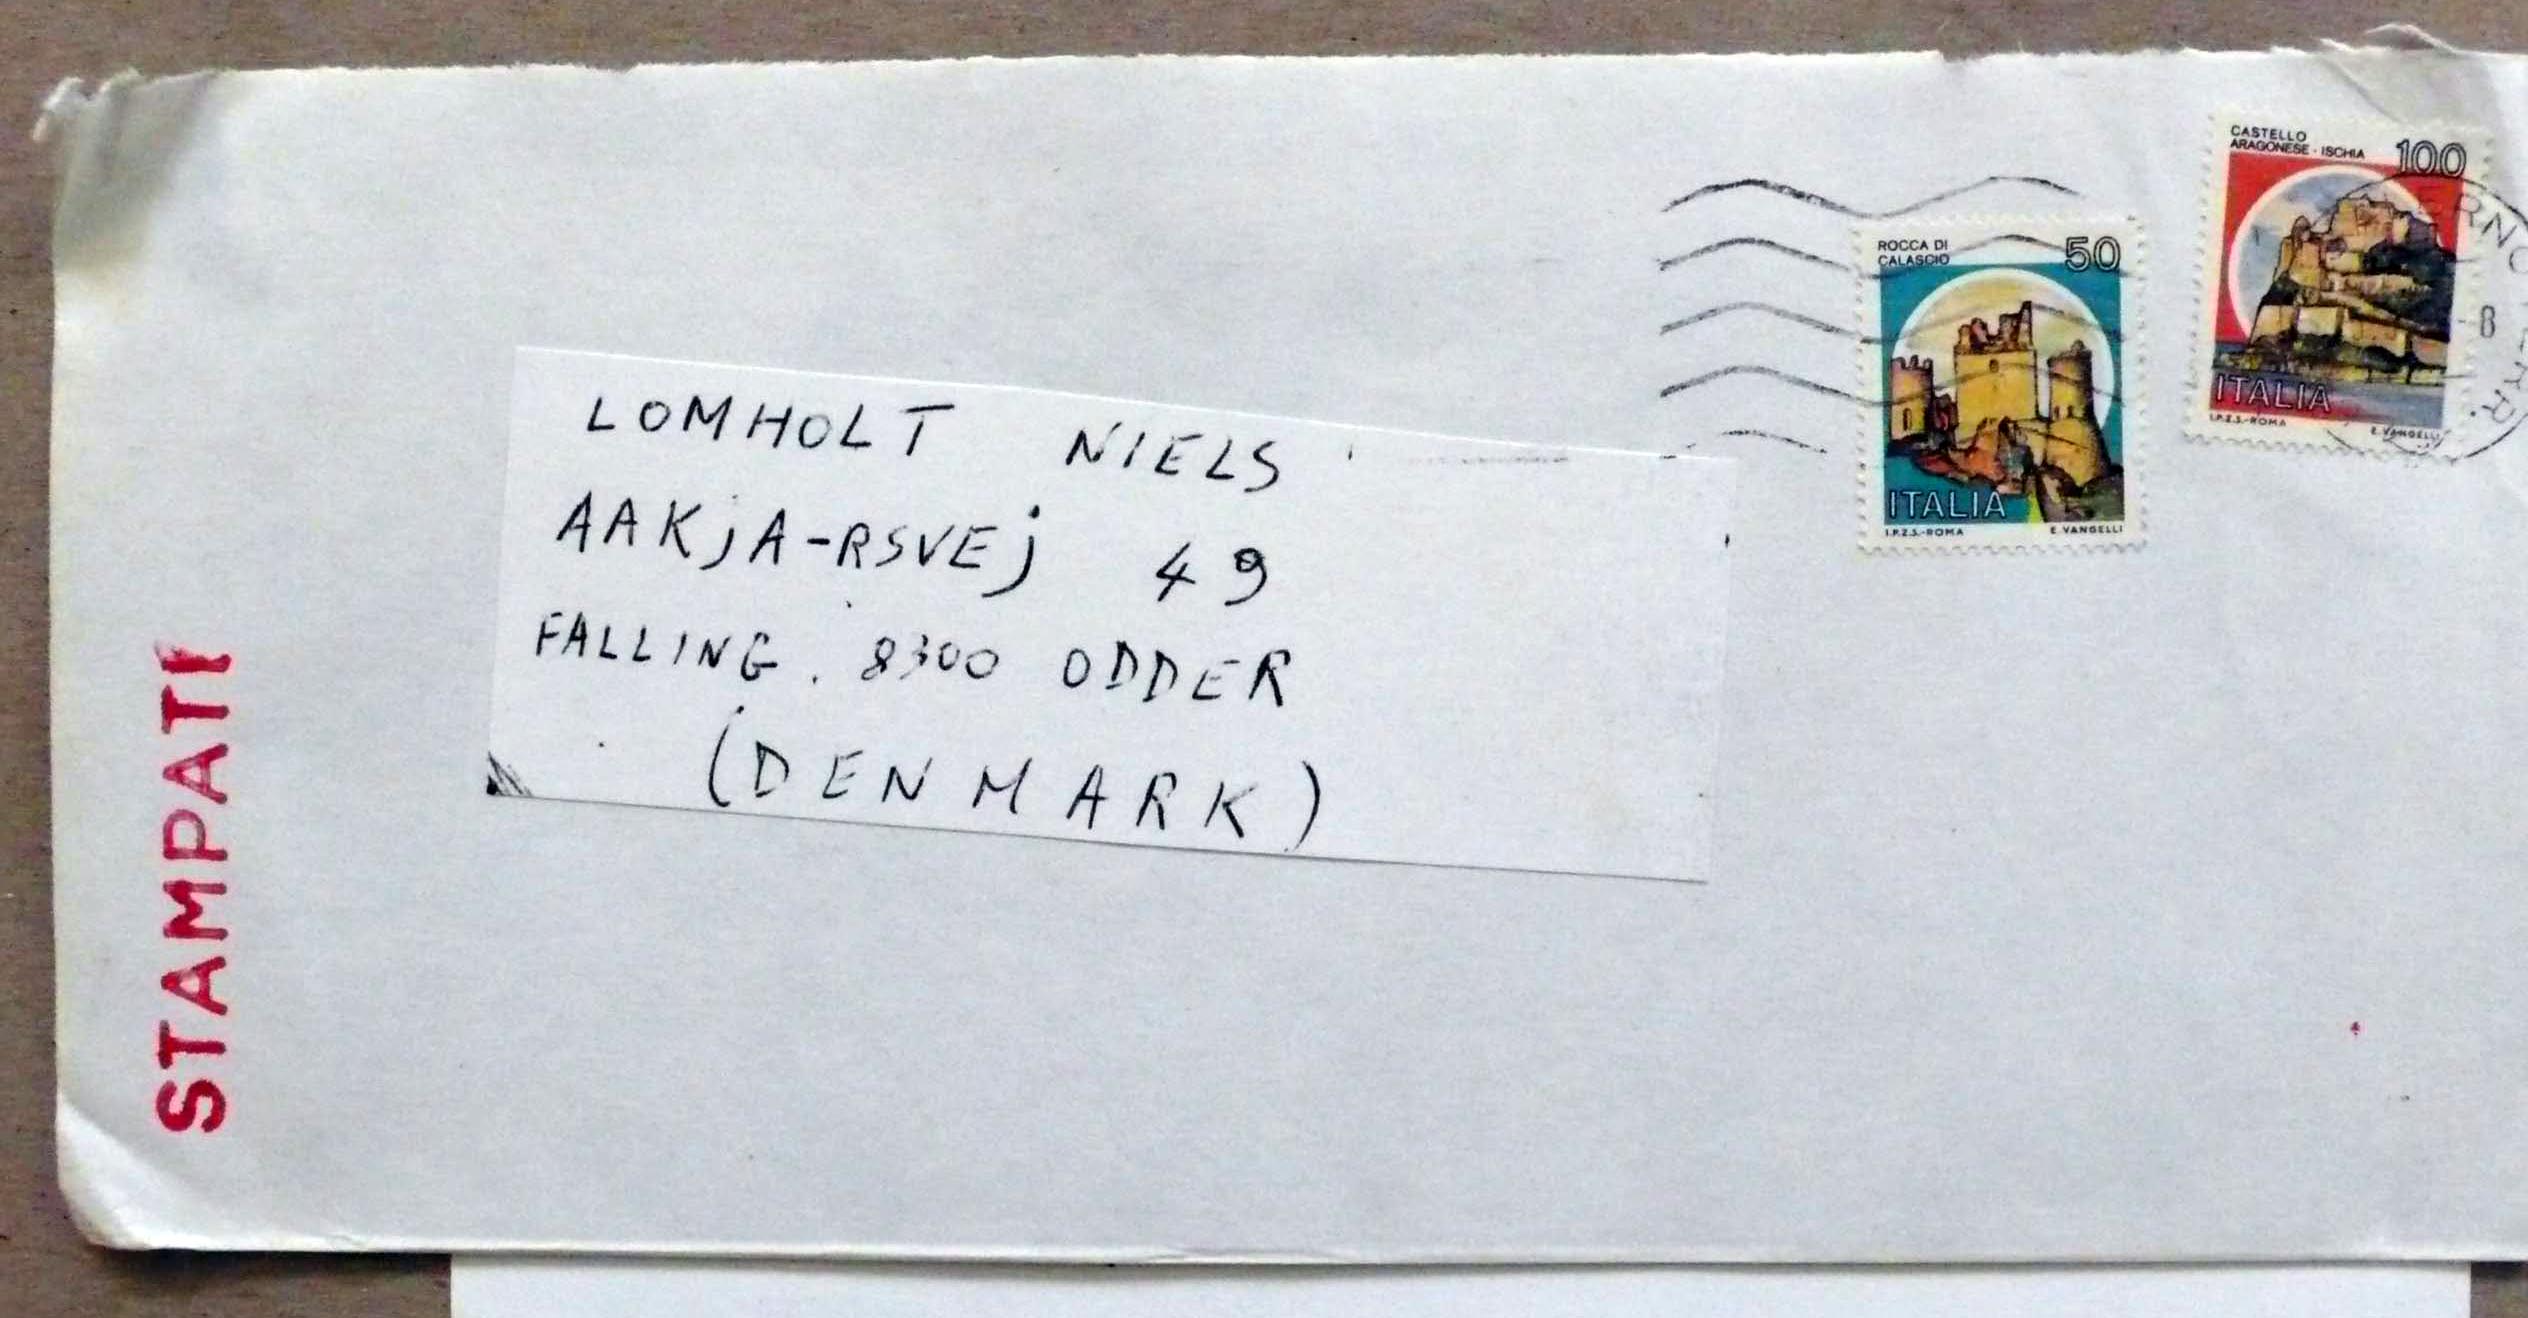 CASTELLO
ARAGONESE - ISCHIA 100
ITALIA
I.P.Z.S.-ROMA E. VANGELLI
8
ROCCA DI
CALASCIO 50
ITALIA
I.P.Z.S.-ROMA E. VANGELLI
LOMHOLT NIELS
AAKjA-RSVEj 49
FALLING. 8300 ODDER
(DENMARK)
STAMPATI